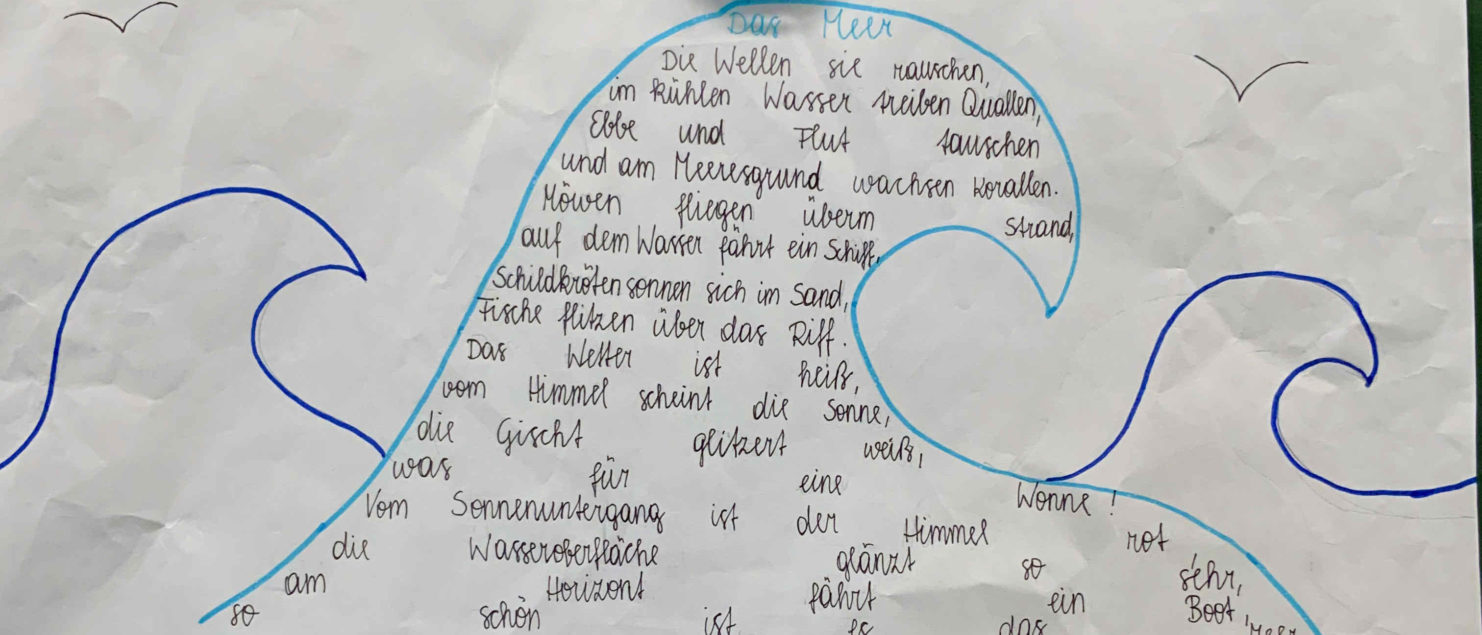 Das Meer
Die Wellen sie rauschen,
im kühlen Wasser treiben Quallen,
Ebbe und Flut tauschen
und am Meeresgrund wachsen Korallen.
Möwen fliegen überm Strand,
auf dem Wasser fährt ein Schiff,
Schildkröten sonnen sich im Sand,
Fische flitzen über das Riff.
Das Wetter ist heiß,
vom Himmel scheint die Sonne,
die Gischt glitzert weiß,
was für eine Wonne!
Vom Sonnenuntergang ist der Himmel rot
die Wasseroberfläche glänzt so sehr,
am Horizont fährt ein Boot,
so schön ist es das Meer